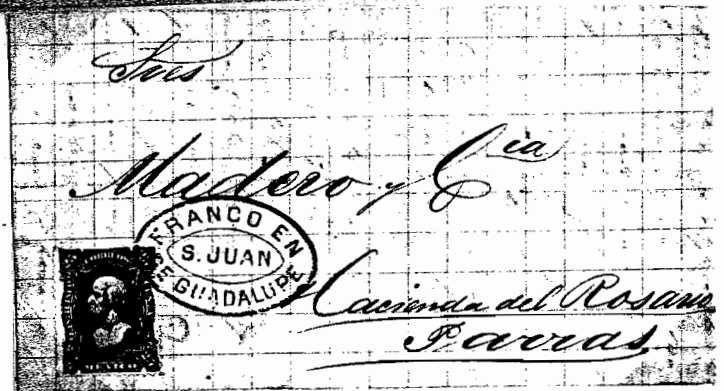 Sres
Madero y Cia
FRANCO EN
S. JUAN
DE GUADALUPE
Hacienda del Rosario
Parras